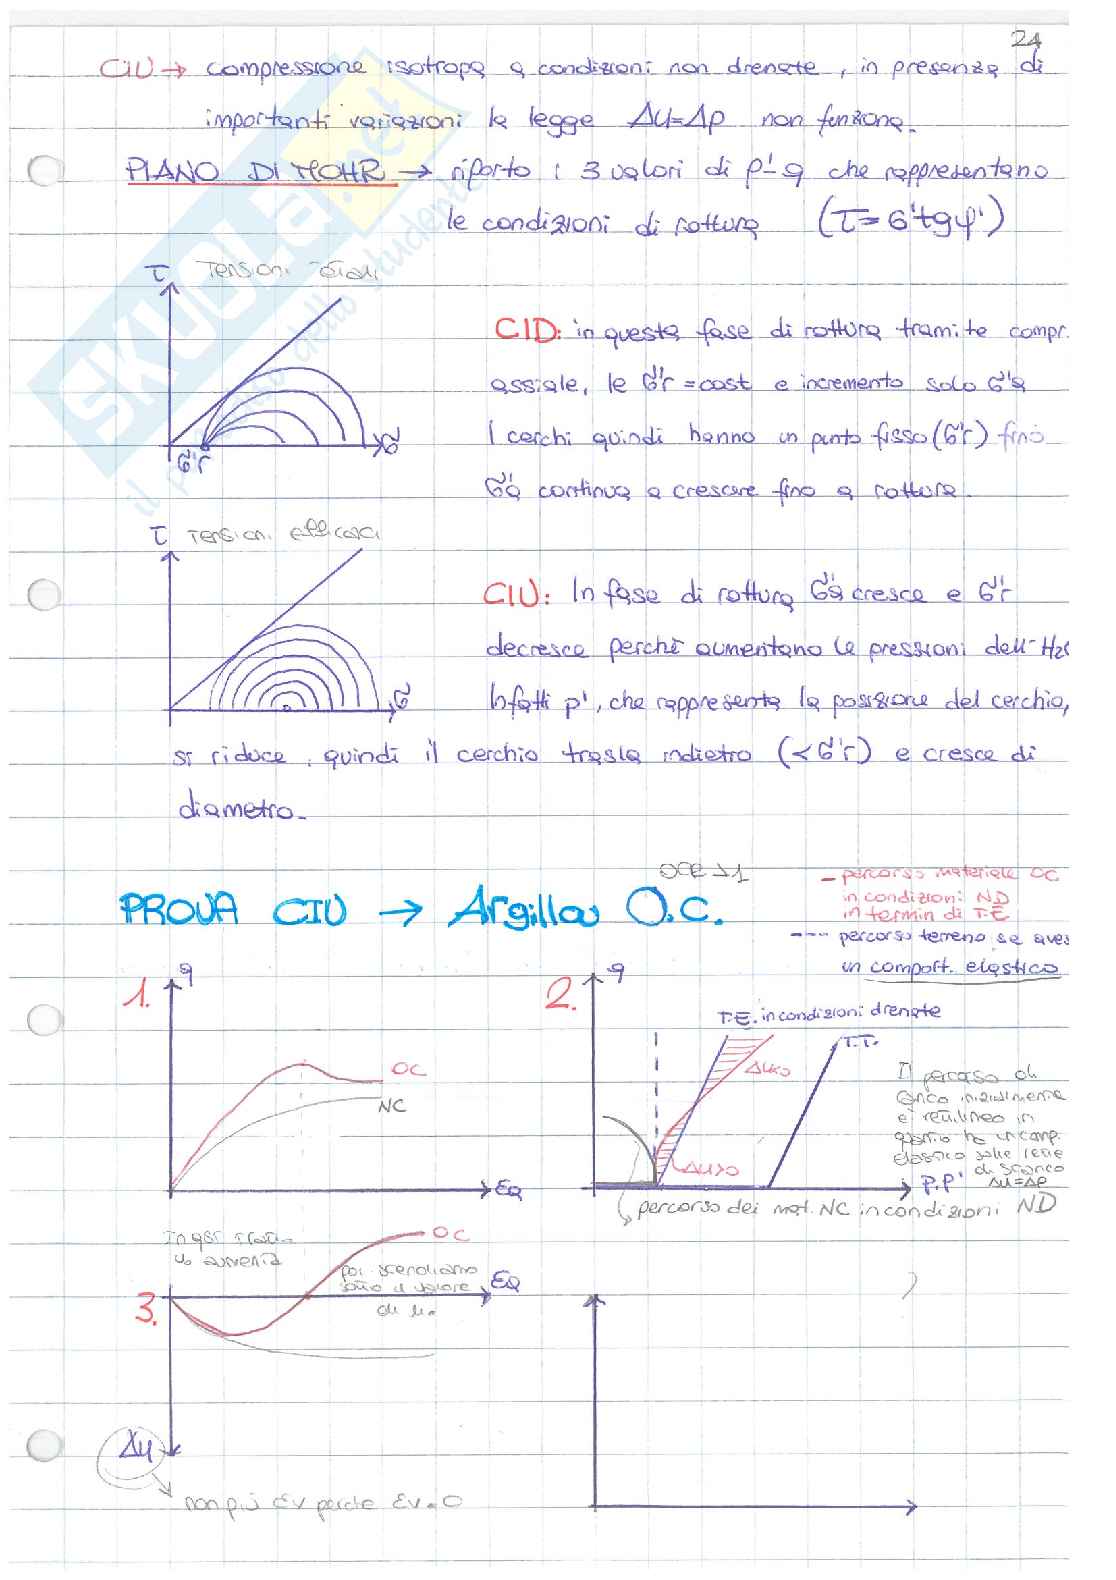 24
CIU → compressione isotropa a condizioni non drenate, in presenza di
importanti variazioni la legge Δu=Δp non funziona.
PIANO DI MOHR → riporto i 3 valori di p'-q che rappresentano
le condizioni di rottura (τ=σ'tgφ')
τ Tensioni Totali
CID: in questa fase di rottura tramite compr.
assiale, le σ'r =cost e incremento solo σ'a
I cerchi quindi hanno un punto fisso (σ'r) finò
σ'a continua a crescere fino a rottura.
σ'r
σ
τ Tensioni efficaci
CIU: In fase di rottura σ'a cresce e σ'r
decresce perchè aumentano le pressioni dell'H2
σ
Infatti p', che rappresenta la posizione del cerchio,
si riduce, quindi il cerchio trasla indietro (<σ'r) e cresce di
diametro.
OCR>1
PROVA CIU → Argilla O.C.
— percorso materiale OC
in condizioni ND
in termin di T.E
--- percorso terreno se aves
in comport. elastico
1. q
OC
NC
εa
2. q
T.E. in condizioni drenate
T.T.
Δu<0
Δu>0
Il percorso di
carico inizialmente
è rettilineo in
quanto ha un comp.
elastico sulle rette
di scarico
Δu=Δp
p.p'
percorso dei mat. NC in condizioni ND
3.
In qst tratto
u aumenta
OC
poi scendiamo
sotto il valore
di u.
εa
Δu
non più εv perchè εv=0
SKUOLA.net
il paradiso dello studente